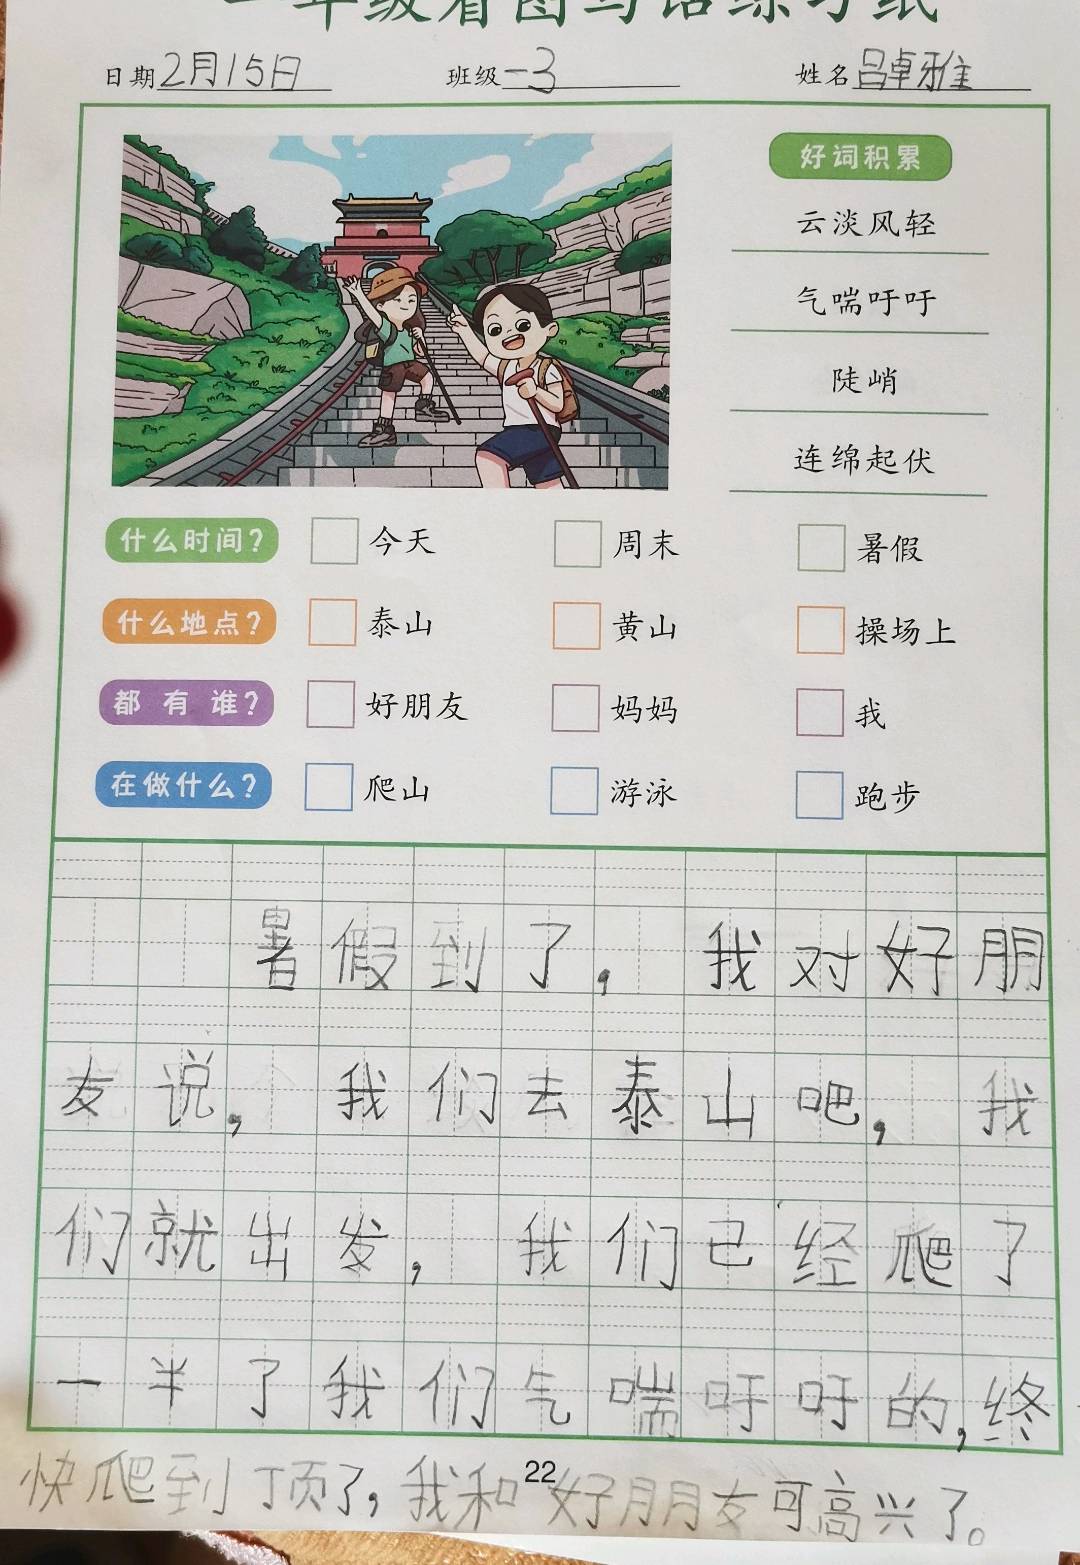 一年级看图写话练习纸
日期2月15日 班级一3 姓名吕卓雅
好词积累
云淡风轻
气喘吁吁
陡峭
连绵起伏
什么时间? 今天 周末 暑假
什么地点? 泰山 黄山 操场上
都有谁? 好朋友 妈妈 我
在做什么? 爬山 游泳 跑步
暑假到了,我对好朋
友说,我们去泰山吧,我
们就出发,我们已经爬了
一半了我们气喘吁吁的,终
快爬到顶了,我和好朋友可高兴了。
22